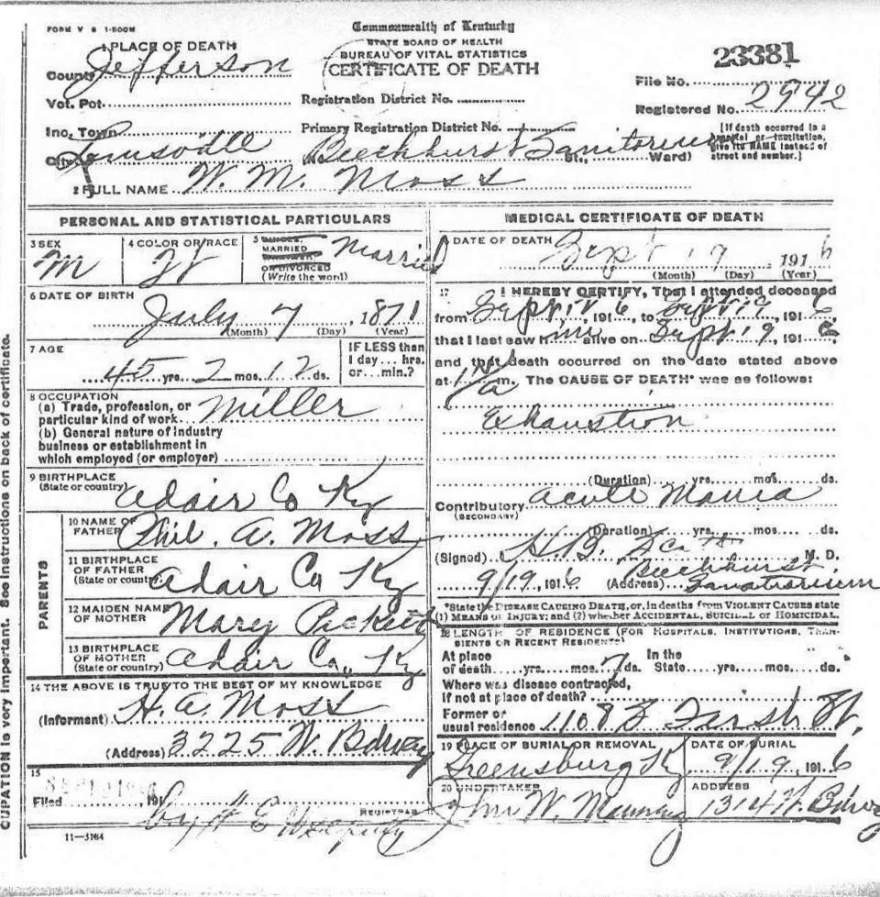 FORM V S 1-500M
Commonwealth of Kentucky
STATE BOARD OF HEALTH
BUREAU OF VITAL STATISTICS
CERTIFICATE OF DEATH
23381
1 PLACE OF DEATH
County Jefferson
File No.
Vot. Pct.
Registration District No.
Registered No. 2942
Inc. Town
Primary Registration District No.
[If death occurred in a hospital or institution, give its NAME instead of street and number.]
City Louisville Beechhurst Sanitorium St., Ward)
2 FULL NAME W. M. Moss
PERSONAL AND STATISTICAL PARTICULARS
3 SEX M
4 COLOR OR RACE W
5 SINGLE, MARRIED WIDOWED OR DIVORCED (Write the word) Married
6 DATE OF BIRTH
July 7, 1871
(Month) (Day) (Year)
7 AGE
45 yrs. 2 mos. 12 ds.
IF LESS than 1 day... hrs. or... min.?
8 OCCUPATION
(a) Trade, profession, or particular kind of work Miller
(b) General nature of industry business or establishment in which employed (or employer)
9 BIRTHPLACE (State or country) Adair Co Ky
PARENTS
10 NAME OF FATHER Phil. A. Moss
11 BIRTHPLACE OF FATHER (State or country) Adair Co Ky
12 MAIDEN NAME OF MOTHER Mary Pickett
13 BIRTHPLACE OF MOTHER (State or country) Adair Co,, Ky
14 THE ABOVE IS TRUE TO THE BEST OF MY KNOWLEDGE
(Informant) H. A. Moss
(Address) 3225 W. Bdway
15
Filed 191
REGISTRAR
Deputy
11—3184
MEDICAL CERTIFICATE OF DEATH
DATE OF DEATH Sept 19, 1916
(Month) (Day) (Year)
17 I HEREBY CERTIFY, That I attended deceased
from Sept 12, 1916, to Sept 19, 1916
that I last saw him alive on Sept 19, 1916
and that death occurred on the date stated above
at m. The CAUSE OF DEATH* was as follows:
Exhaustion
(Duration) yrs. mos. ds.
Contributory (SECONDARY) Acute Mania
(Duration) yrs. mos. ds.
(Signed) H. B. Scott M. D.
9/19, 1916 (Address) Beechhurst Sanatiorium
*State the DISEASE CAUSING DEATH, or, in deaths from VIOLENT CAUSES state
(1) MEANS OF INJURY; and (2) whether ACCIDENTAL, SUICIDAL or HOMICIDAL.
18 LENGTH OF RESIDENCE (FOR HOSPITALS, INSTITUTIONS, TRANSIENTS OR RECENT RESIDENTS)
At place of death yrs. mos. 7 ds. In the State yrs. mos. ds.
Where was disease contracted, if not at place of death?
Former or usual residence 1108 St,
19 PLACE OF BURIAL OR REMOVAL Greensburg Ky
DATE OF BURIAL 9/19, 1916
20 UNDERTAKER Jhn W. Manning
ADDRESS 1314 W. Bdway
CUPATION is very important. See instructions on back of certificate.